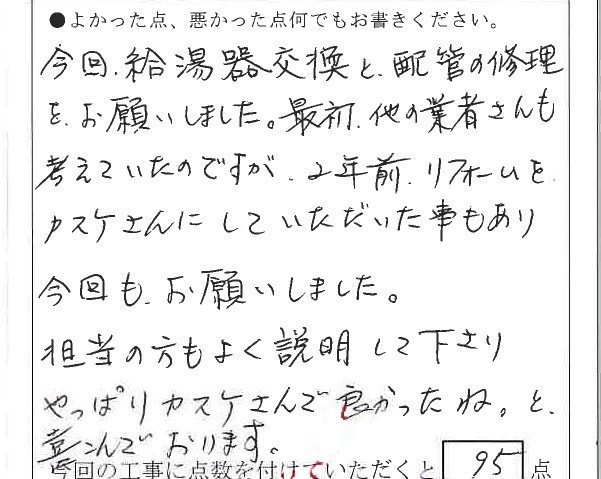 ●よかった点、悪かった点何でもお書きください。
今回、給湯器交換と、配管の修理
を、お願いしました。最初、他の業者さんも
考えていたのですが、2年前、リフォームを
カスケさんにしていただいた事もあり
今回も、お願いしました。
担当の方もよく説明して下さり
やっぱりカスケさんで良かったね。と、
喜こんでおります。
今回の工事に点数を付けていただくと 95 点